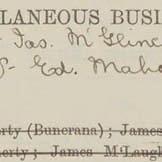 LLANEOUS BUSI
Jas. McGlinc
Ed. Maho
rty (Buncrana); James
herty; James M'Laugh